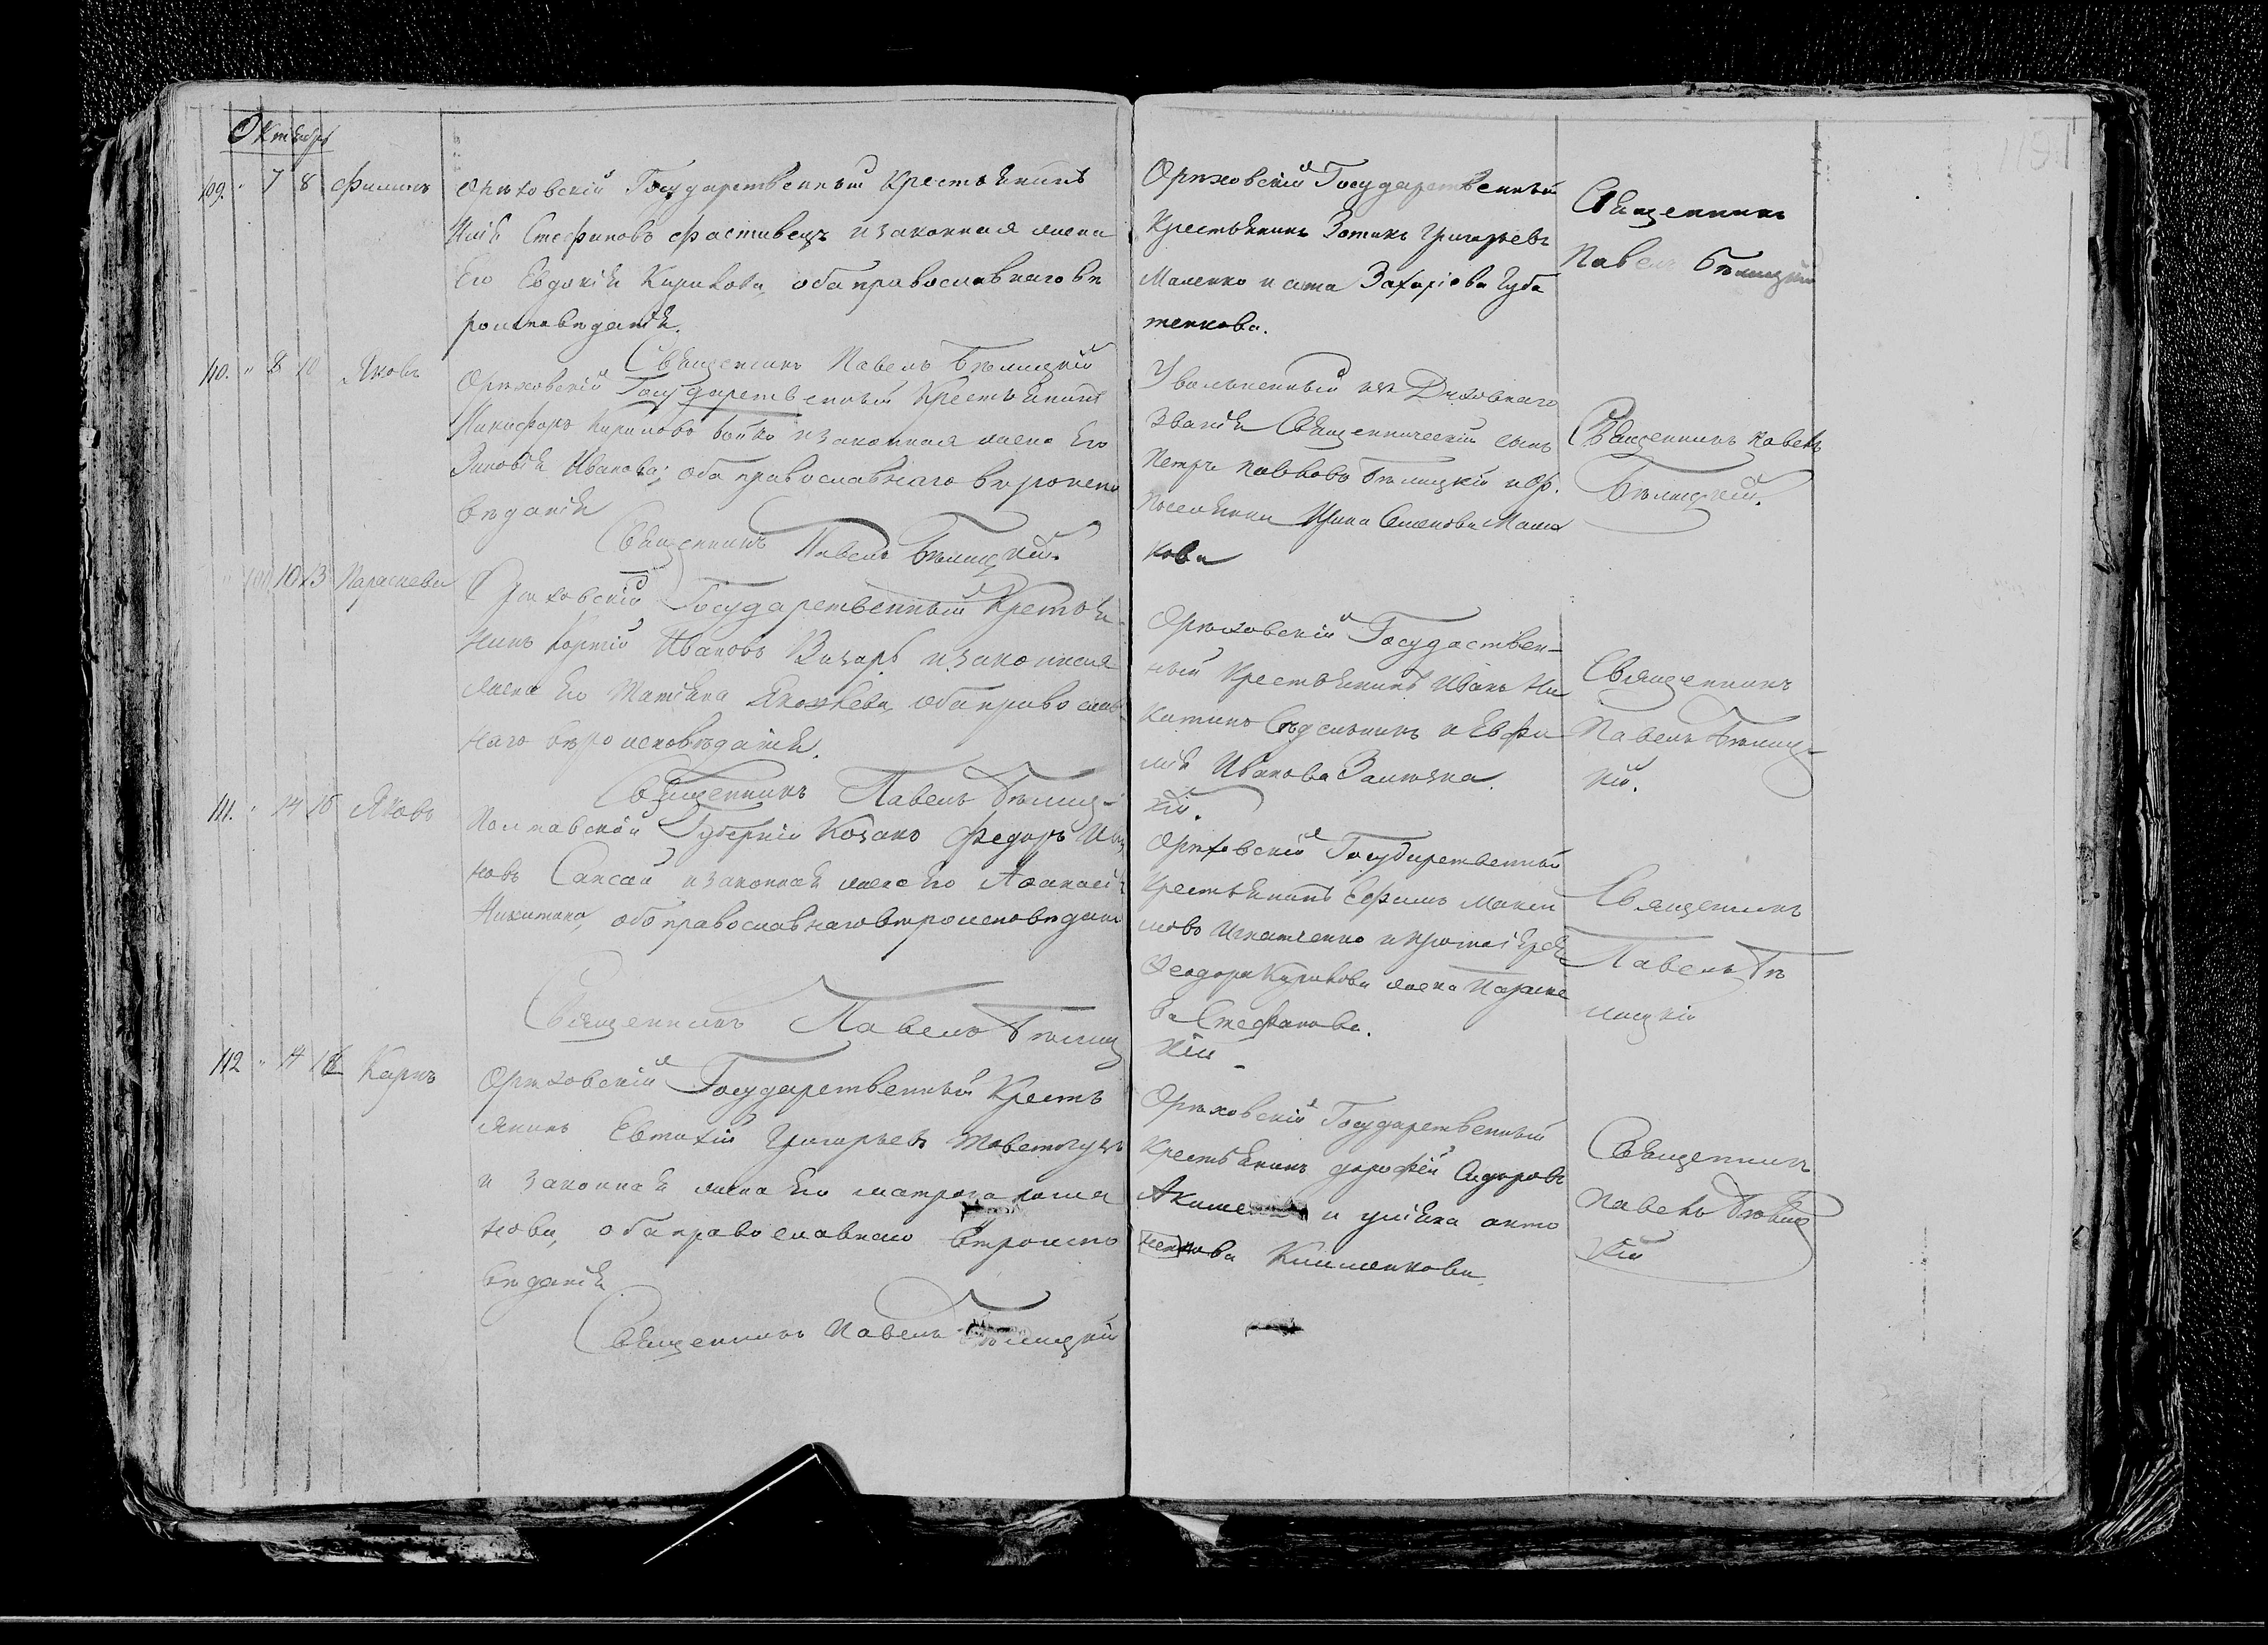 Октябрь
109. " 7 8 Филипъ
Орѣховскій Государственный Крестьянинъ
Илія Стефановъ Фастивецъ и законная жена
Его Евдокія Кирилова, оба православнаго вѣ
роисповѣданія.
Священникъ Павелъ Бѣлицкій
110. " 8 10 Яковъ
Орѣховскій Государственный Крестьянинъ
Никифоръ Кириловъ Бойко и законная жена Его
Зиновія Иванова, оба православнаго вѣроиспо
вѣданія
Священникъ Павелъ Бѣлицкій.
10 13 Параскева
Орѣховскій Государственный Крестья-
нинъ Ивановъ и законная
жена Его Татіана Яковлева, оба православ
наго вѣроисповѣданія.
Священникъ Павелъ Бѣлиц-
111. " 14 16 Яковъ
Полтавской Губерніи Козакъ Федоръ Ива
новъ Саксай и законная жена Его Афанасія
Никитина, оба православнаго вѣроисповѣдані
Священникъ Павелъ Бѣлиц
112 " 14 16 Карпъ
Орѣховскій Государственный Кресть
янинъ Евтихій Григорьевъ Товстогузъ
и законная жена Его Матрона Рома
нова, оба православнаго вѣроиспо
вѣданія
Священникъ Павелъ Бѣлицкій
Орѣховскій Государственный
Крестьянинъ Зотикъ Григорьевъ
Маленко и Захаріова Губа
тенкова.
Священникъ
Павелъ Бѣлицкій
Увольненный изъ Духовнаго
званія Священническій сынъ
Петръ Павловъ Бѣлицкій и Ор.
поселянки Ирина Семенова Мали
кова
Священникъ Павелъ
Бѣлицкій.
Орѣховскій Государствен-
ный Крестьянинъ Иванъ Ни
китинъ и Евфи
мія Иванова
Священникъ
Павелъ Бѣлиц-
кій.
кій.
Орѣховскій Государственный
Крестьянинъ Ефимъ Макси
мовъ Игнатенко и протоіерея
Феодора Курилова жена Параске
ва Стефанова.
Священникъ
Павелъ Бѣ
лицкій
кій
Орѣховскій Государственный
Крестьянинъ Дорофей Сидоровъ
и уліяна анто
нова Клименкова
Священникъ
Павелъ Бѣлиц
кій